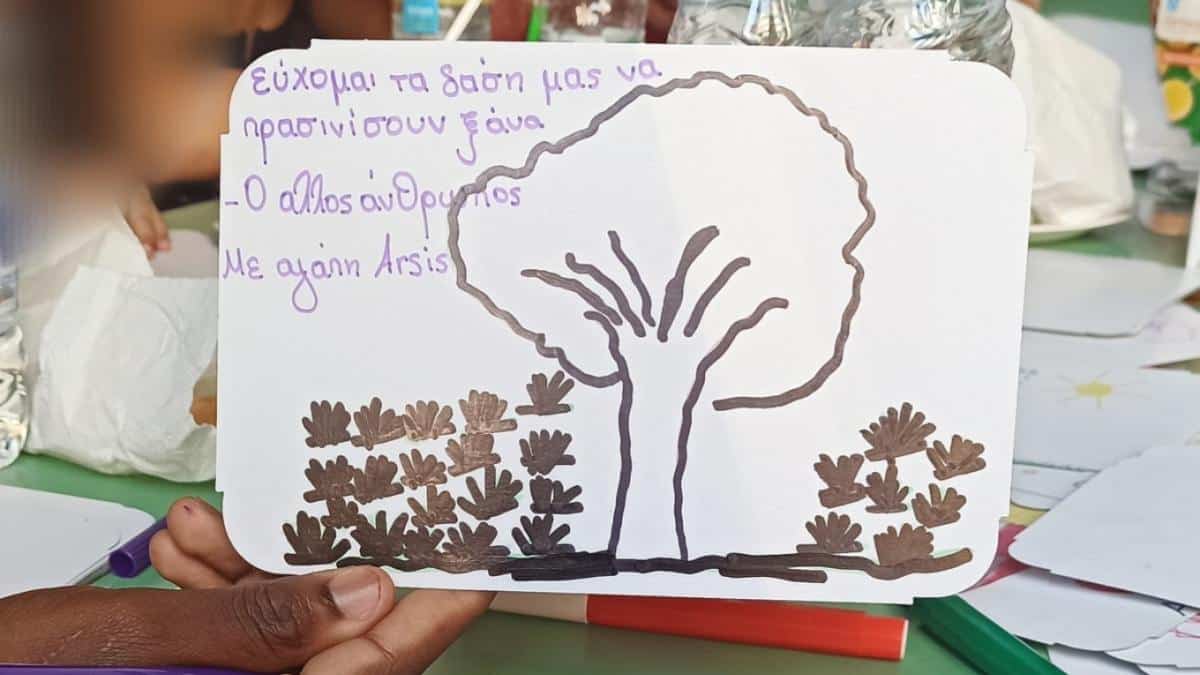 εύχομαι τα δάση μας να
πρασινίσουν ξάνα
- Ο αλλος άνθρωπος
Με αγάπη Arsis